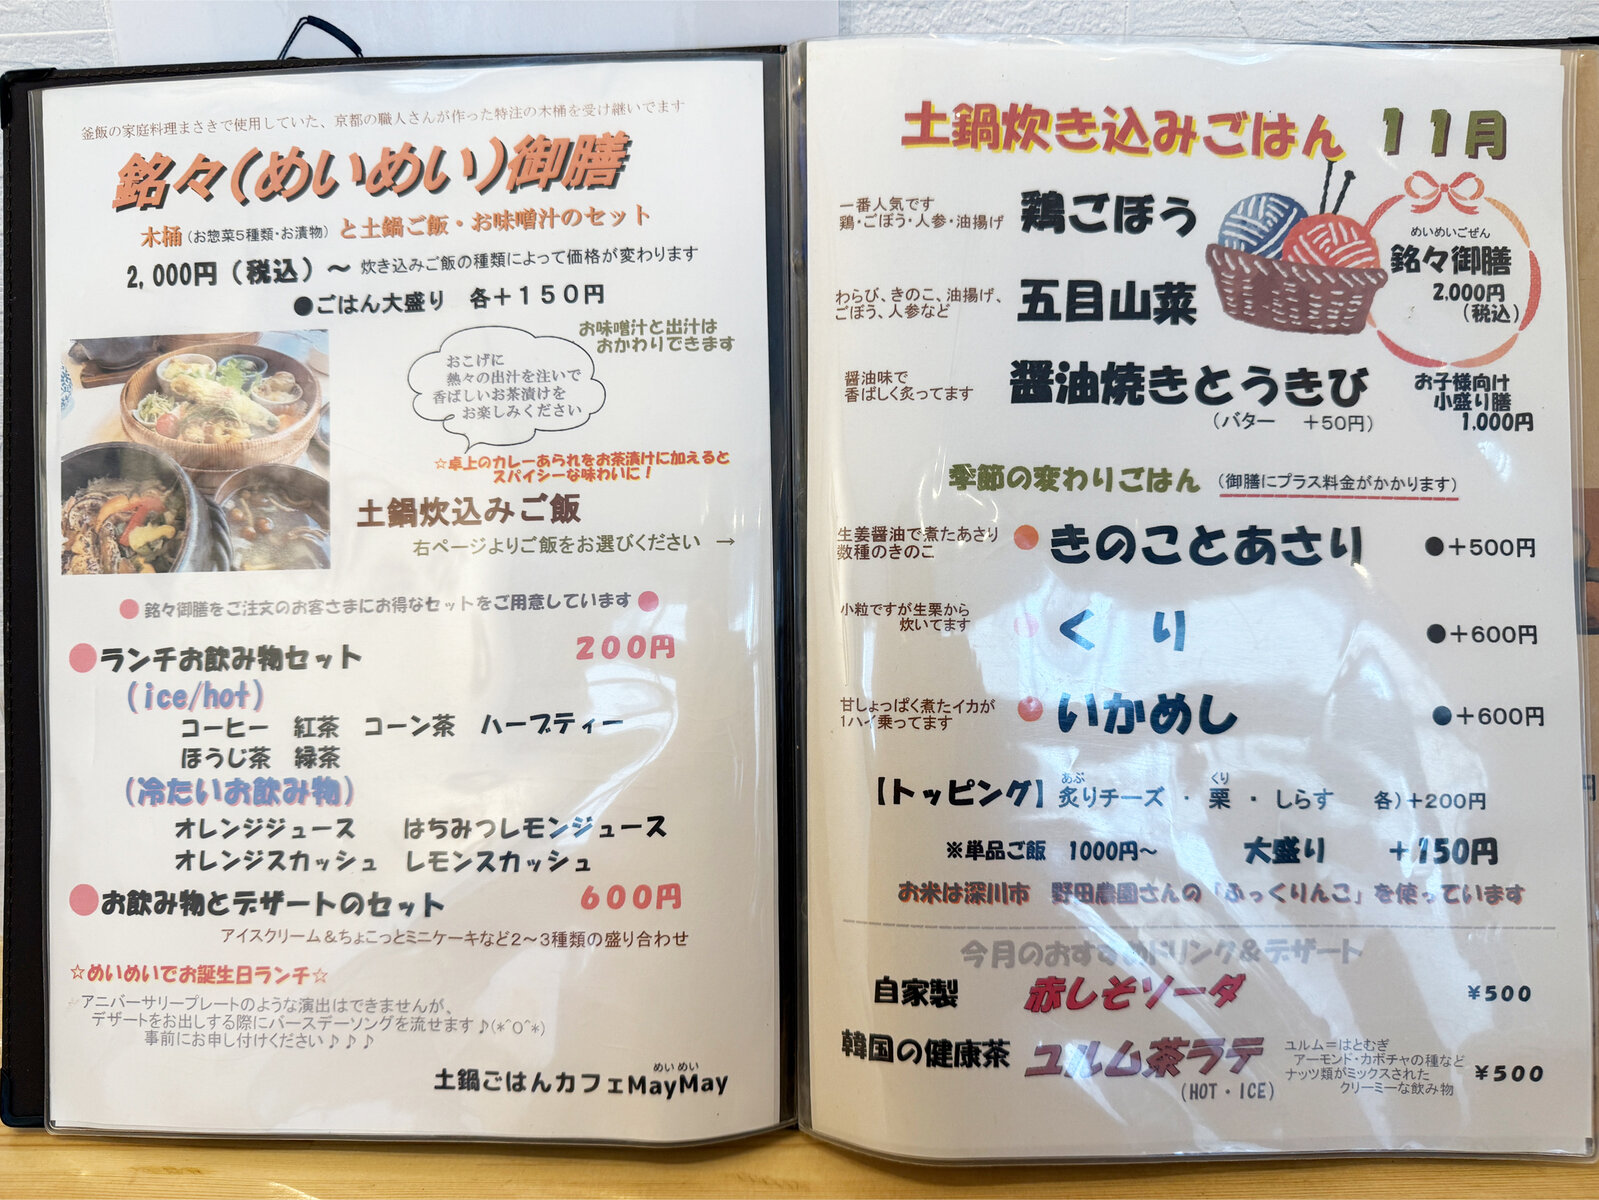 釜飯の家庭料理まさきで使用していた、京都の職人さんが作った特注の木桶を受け継いでます
銘々(めいめい)御膳
木桶(お惣菜5種類・お漬物)と土鍋ご飯・お味噌汁のセット
2,000円(税込)～ 炊き込みご飯の種類によって価格が変わります
●ごはん大盛り 各+150円
お味噌汁と出汁は
おかわりできます
おこげに
熱々の出汁を注いで
香ばしいお茶漬けを
お楽しみください
☆卓上のカレーあられをお茶漬けに加えると
スパイシーな味わいに!
土鍋炊込みご飯
右ページよりご飯をお選びください →
●銘々御膳をご注文のお客さまにお得なセットをご用意しています●
●ランチお飲み物セット 200円
(ice/hot)
コーヒー 紅茶 コーン茶 ハーブティー
ほうじ茶 緑茶
(冷たいお飲み物)
オレンジジュース はちみつレモンジュース
オレンジスカッシュ レモンスカッシュ
●お飲み物とデザートのセット 600円
アイスクリーム&ちょこっとミニケーキなど2～3種類の盛り合わせ
☆めいめいでお誕生日ランチ☆
アニバーサリープレートのような演出はできませんが、
デザートをお出しする際にバースデーソングを流せます♪(*^O^*)
事前にお申し付けください♪♪♪
めい めい
土鍋ごはんカフェMayMay
土鍋炊き込みごはん 11月
一番人気です
鶏・ごぼう・人参・油揚げ
鶏ごぼう
わらび、きのこ、油揚げ、
ごぼう、人参など
五目山菜
醤油味で
香ばしく炙ってます
醤油焼きとうきび
(バター +50円)
めいめいごぜん
銘々御膳
2,000円
(税込)
お子様向け
小盛り膳
1,000円
季節の変わりごはん (御膳にプラス料金がかかります)
生姜醤油で煮たあさり
数種のきのこ
●きのことあさり ●+500円
小粒ですが生栗から
炊いてます
●くり ●+600円
甘しょっぱく煮たイカが
1ハイ乗ってます
●いかめし ●+600円
あぶ くり
【トッピング】炙りチーズ・栗・しらす 各)+200円
※単品ご飯 1000円～ 大盛り +150円
お米は深川市 野田農園さんの「ふっくりんこ」を使っています
今月のおすすめドリンク&デザート
自家製 赤しそソーダ ¥500
韓国の健康茶 ユルム茶ラテ
(HOT・ICE)
ユルム=はとむぎ
アーモンド・カボチャの種など
ナッツ類がミックスされた
クリーミーな飲み物
¥500